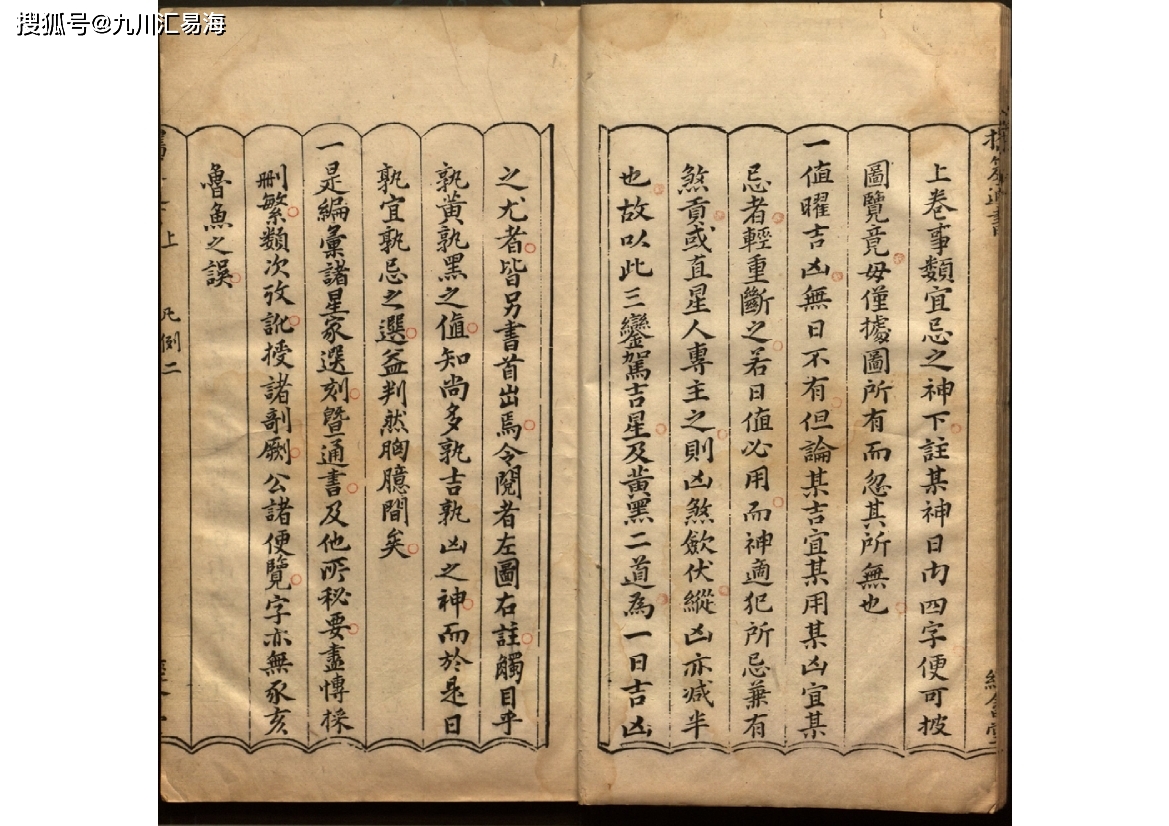 搜狐号@九川汇易海
上卷事類宜忌之神下註某神日內四字便可披
圖覽竟毋僅據圖所有而忽其所無也
一值曜吉凶無日不有但論某吉宜某用某凶宜某
忌者輕重斷之若日值必用而神適犯所忌兼有
煞貢或直星人專主之則凶煞歛伏縱凶亦減半
也故以此三鑾駕吉星及黃黑二道為一日吉凶
之尤者皆另書首出焉令閱者左圖右註觸目乎
孰黃孰黑之值知尚多孰吉孰凶之神而於是日
孰宜孰忌之選益判然胸臆間矣
一是編彙諸星家選刻暨通書及他所秘要盡慱採
刪繁類次攷訛授諸剞劂公諸便覽字亦無豕亥
魯魚之誤
上 凡例二